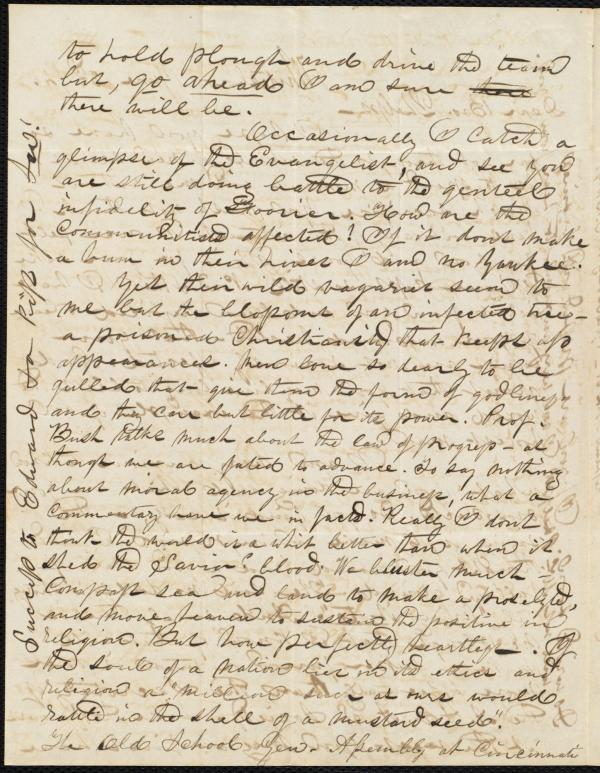 to hold plough and drive the team
but, go ahead I am sure
there will be.
Occasionally I catch a
glimpse of the Evangelist, and see you
are still doing battle to the genteel
infidelity of How are the
Communities affected! If it dont make
a buzz in their hives I and no Yankee.
Yet their wild vagaries seem to
me but the blossoms of an infected tree—
a poisoned Christianity that keeps up
appearances. Men love so dearly to be
gulled that give them the form of godliness
and they care but little for its power. Prof.
Bush talks much about the law of progress — as
though we are fated to advance. To say nothing
about moral agency in the business, what a
Commentary have we in facts. Really I dont
think the world is a whit better than when it
shed the Savior's blood. We bluster much —
Compass sea and land to make a proselyte,
and move heaven to sustain the positive in
religion. But how perfectly heartless —. If
the soul of a nation lies in its ethics and
religion a "million such as ours would
rattle in the shell of a mustard seed".
The Old School Gen. Assembly at Cincinnati
Success to Edward &